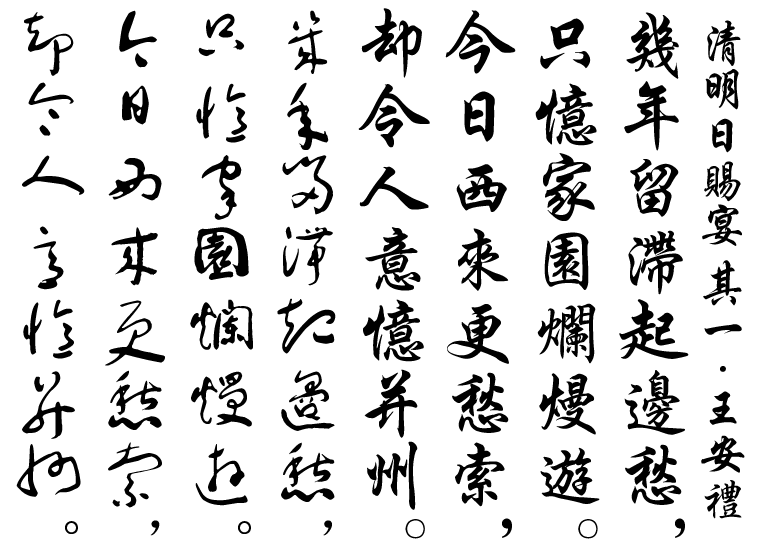 清明日賜宴 其一·王安禮
幾年留滯起邊愁，
只憶家園爛熳遊。
今日西來更愁索，
却令人意憶并州。
幾年留滯起邊愁，
只憶家園爛熳遊。
今日西來更愁索，
却令人意憶并州。